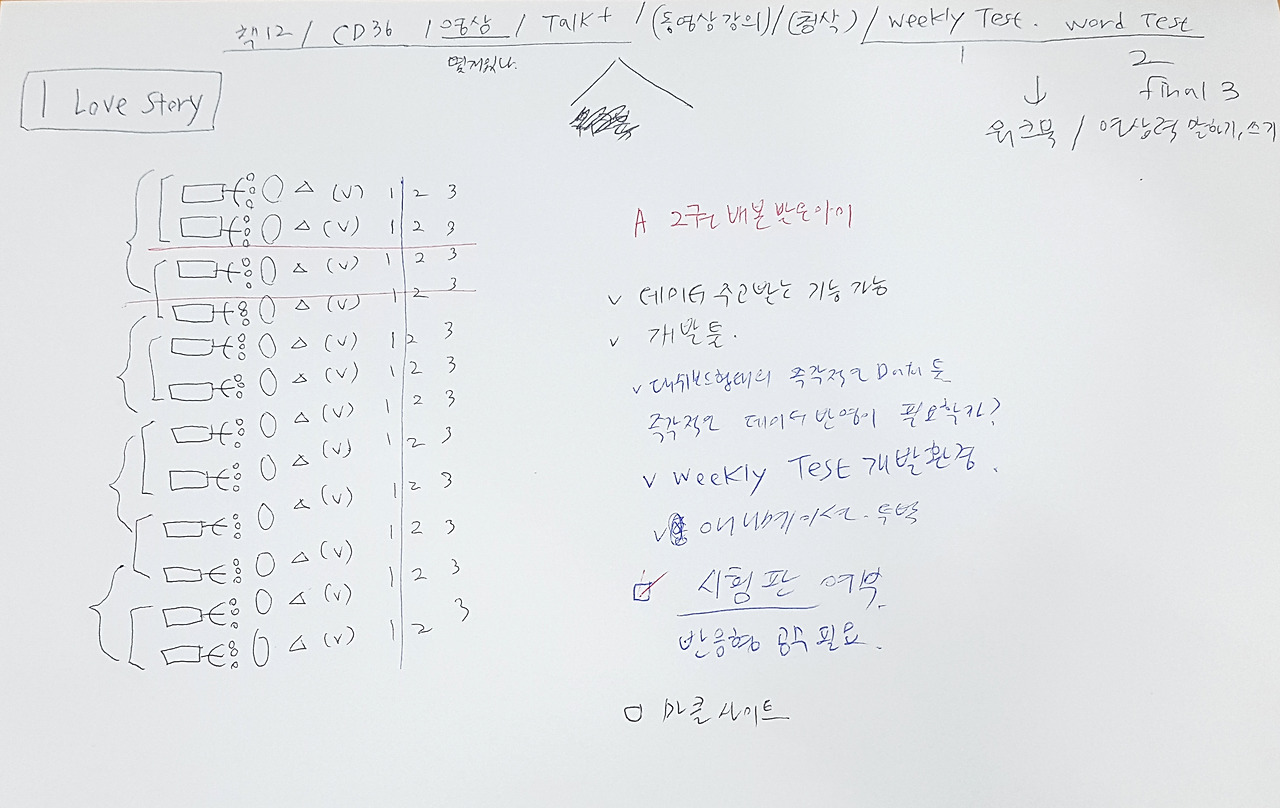 책12 / CD36 / 영상 / Talk+ / (동영상강의)/(첨삭) / weekly Test. word Test
몇개있나.
1 2
final 3
1 Love Story
워크북 / 영상력 말하기, 쓰기
(v) 1 2 3
(v) 1 2 3
(v) 1 2 3
(v) 1 2 3
(v) 1 2 3
(v) 1 2 3
(v) 1 2 3
(v) 1 2 3
(v) 1 2 3
(v) 1 2 3
(v) 1 2 3
(v) 1 2 3
A 2권 배본 받은아이
v 데이터 주고받는 기능 가능
v 개발툴.
v 대쉬보드형태의 즉각적인 Data 등
즉각적인 데이터 반영이 필요한가?
v weekly Test 개발환경.
v 애니메이션.
시험판 여부.
반응형 공부 필요.
마콜 사이트